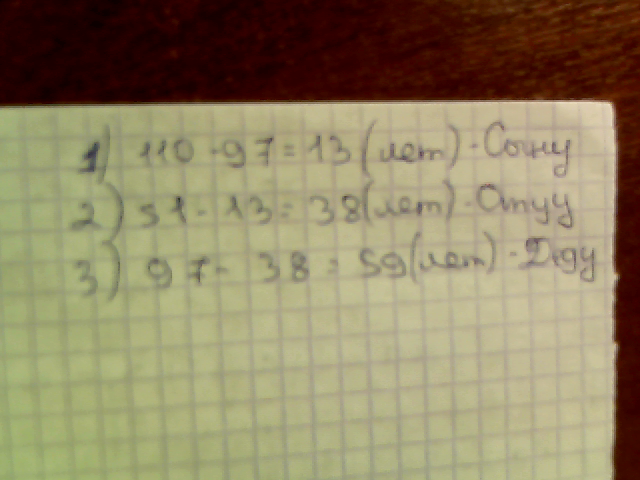 1) 110 - 97 = 13 (лет) - Сыну
2) 51 - 13 = 38 (лет) - Отцу
3) 97 - 38 = 59 (лет) - Деду